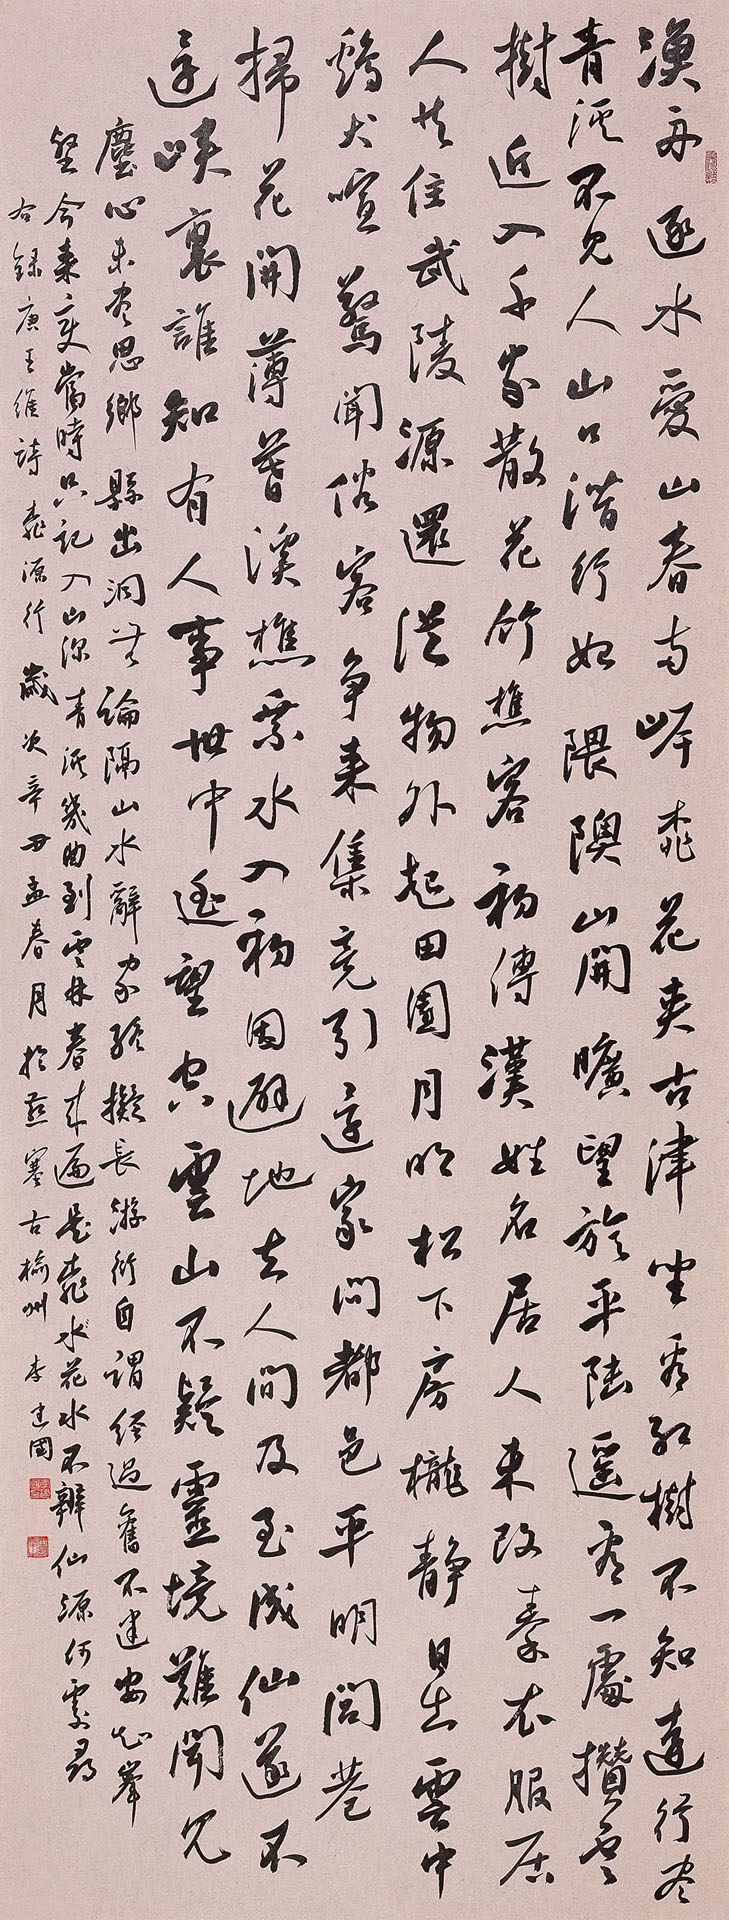 漁舟逐水愛山春兩岸桃花夾古津坐看紅樹不知遠行盡
青溪不見人山口潛行始隈隩山開曠望旋平陸遙看一處攢雲
樹近入千家散花竹樵客初傳漢姓名居人未改秦衣服居
人共住武陵源還從物外起田園月明松下房櫳靜日出雲中
鷄犬喧驚聞俗客爭來集競引還家問都邑平明閭巷
掃花開薄暮漁樵乘水入初因避地去人間及至成仙遂不
還峽裏誰知有人事世中遙望空雲山不疑靈境難聞見
塵心未盡思鄉縣出洞無論隔山水辭家終擬長游衍自謂經過舊不迷安知峯
壑今來變當時只記入山深青溪幾曲到雲林春來遍是桃水花水不辨仙源何處尋
右録唐王維詩桃源行歲次辛丑孟春月於燕塞古榆州李建國